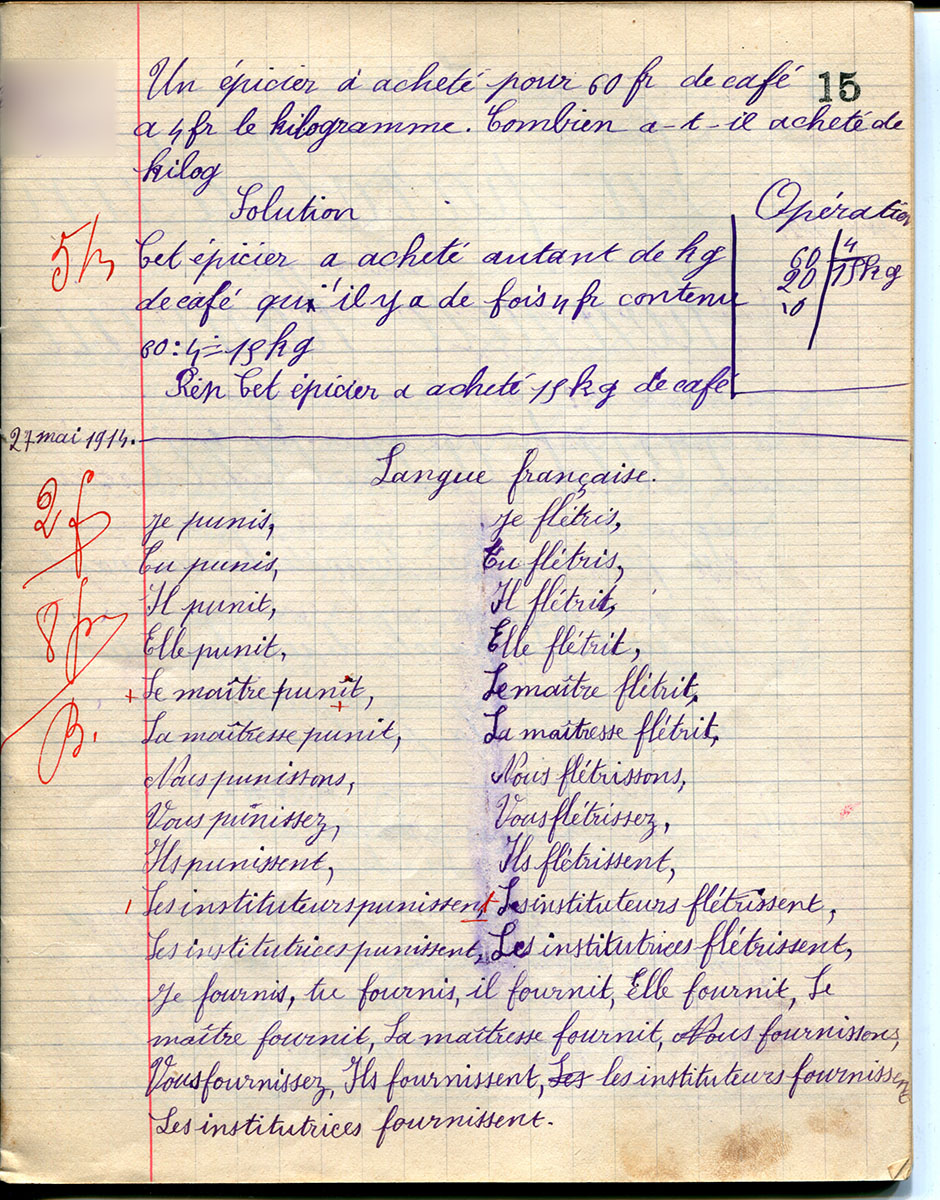 Un épicier à acheté pour 60 fr de café
15
a 4 fr le kilogramme. Combien a-t-il acheté de
kilog
Solution
Opération
Cet épicier a acheté autant de kg
de café qu'il y a de fois 4 fr contenu
60 : 4 = 15 kg
60 4
20 15 kg
0
Rép Cet épicier a acheté 15 kg de café
27 mai 1914.
Langue française.
2 f
8 f
B.
Je punis,
Tu punis,
Il punit,
Elle punit,
Le maître punît,
La maîtresse punit,
Nous punissons,
Vous punissez,
Ils punissent,
Les instituteurs punissent
Les institutrices punissent,
Je flétris,
Tu flétris,
Il flétrit,
Elle flétrit,
Le maître flétrit,
La maîtresse flétrit,
Nous flétrissons,
Vous flétrissez,
Ils flétrissent,
Les instituteurs flétrissent,
Les institutrices flétrissent,
Je fournis, tu fournis, il fournit, Elle fournit, Le
maître fournit, La maîtresse fournit, Nous fournissons,
Vous fournissez, Ils fournissent, Les les instituteurs fournissent
Les institutrices fournissent.